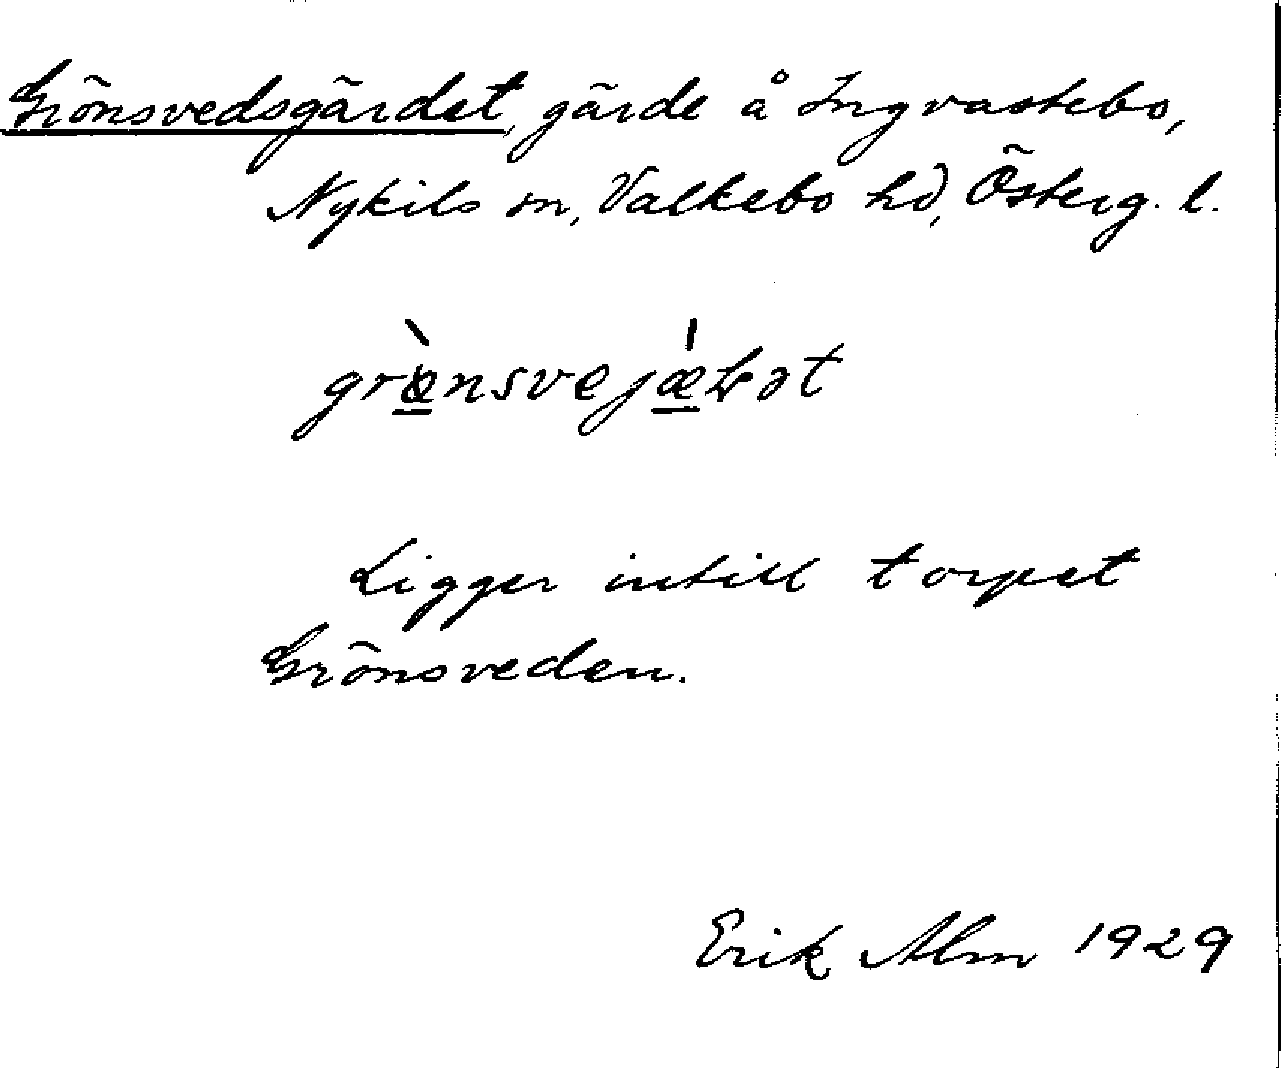 Grönsvedsgärdet, gärde å Ingvastebo,
Nykils sn, Valkebo hd, Österg. l.
Ligger intill torpet
Grönsveden.
Erik Alm 1929